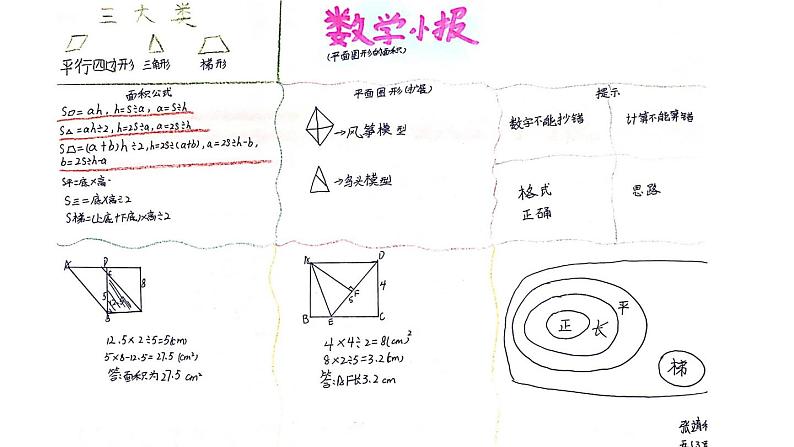 三大类
平行四边形 三角形 梯形
数学小报
(平面图形的面积)
面积公式
S▱=ah, h=S÷a, a=S÷h
S△=ah÷2, h=2S÷a, a=2S÷h
S⏢=(a+b)h÷2, h=2S÷(a+b), a=2S÷h-b,
b=2S÷h-a
S平=底×高
S三=底×高÷2
S梯=(上底+下底)×高÷2
平面图形(扩谈)
→风筝模型
→鸟头模型
提示
数字不能抄错
计算不能算错
格式
正确
思路
A D
8
5
B
12.5×2÷5=5(cm)
5×8-12.5=27.5(cm²)
答:面积为27.5cm²
A D
4
F
5
B E C
4×4÷2=8(cm²)
8×2÷5=3.2(cm)
答:AF长3.2cm
正
长
平
梯